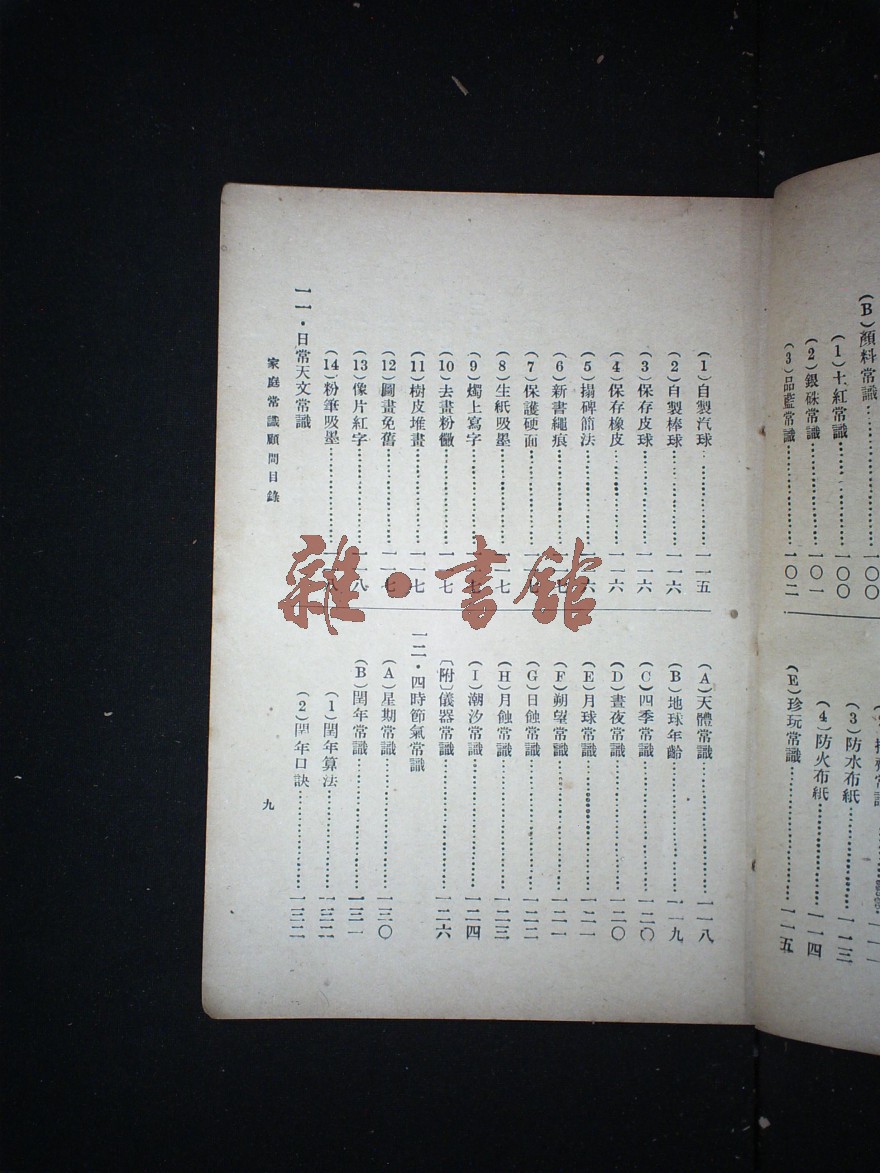 (B)顏料常識……一〇〇
(1)土紅常識……一〇〇
(2)銀硃常識……一〇一
(3)品藍常識……一〇二
(3)防水布紙……一一三
(4)防火布紙……一一四
(E)珍玩常識……一一五
(1)自製汽球……一一五
(2)自製棒球……一一六
(3)保存皮球……一一六
(4)保存橡皮……一一六
(5)搨碑簡法……一一六
(6)新書繩痕……一一七
(7)保護硬面……一一七
(8)生紙吸墨……一一七
(9)燭上寫字……一一七
(10)去畫粉黴……一一七
(11)樹皮堆畫……一一七
(12)圖畫免舊……一一七
(13)像片紅字……一一八
(14)粉筆吸墨……一一八
一一・日常天文常識
(A)天體常識……一一八
(B)地球年齡……一一九
(C)四季常識……一二〇
(D)晝夜常識……一二〇
(E)月球常識……一二一
(F)朔望常識……一二一
(G)日蝕常識……一二二
(H)月蝕常識……一二三
(I)潮汐常識……一二四
〔附〕儀器常識……一二六
一二・四時節氣常識
(A)星期常識……一三〇
(B)閏年常識……一三一
(1)閏年算法……一三二
(2)閏年口訣……一三二
家庭常識顧問目錄
九
雜・書館